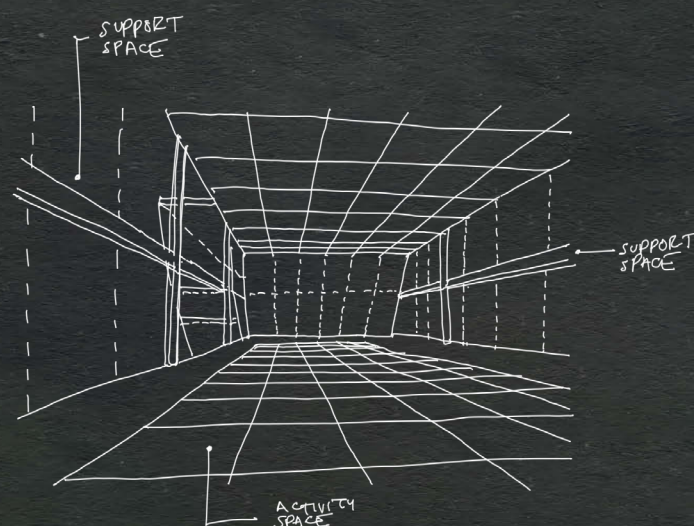 SUPPORT
SPACE
SUPPORT
SPACE
ACTIVITY
SPACE